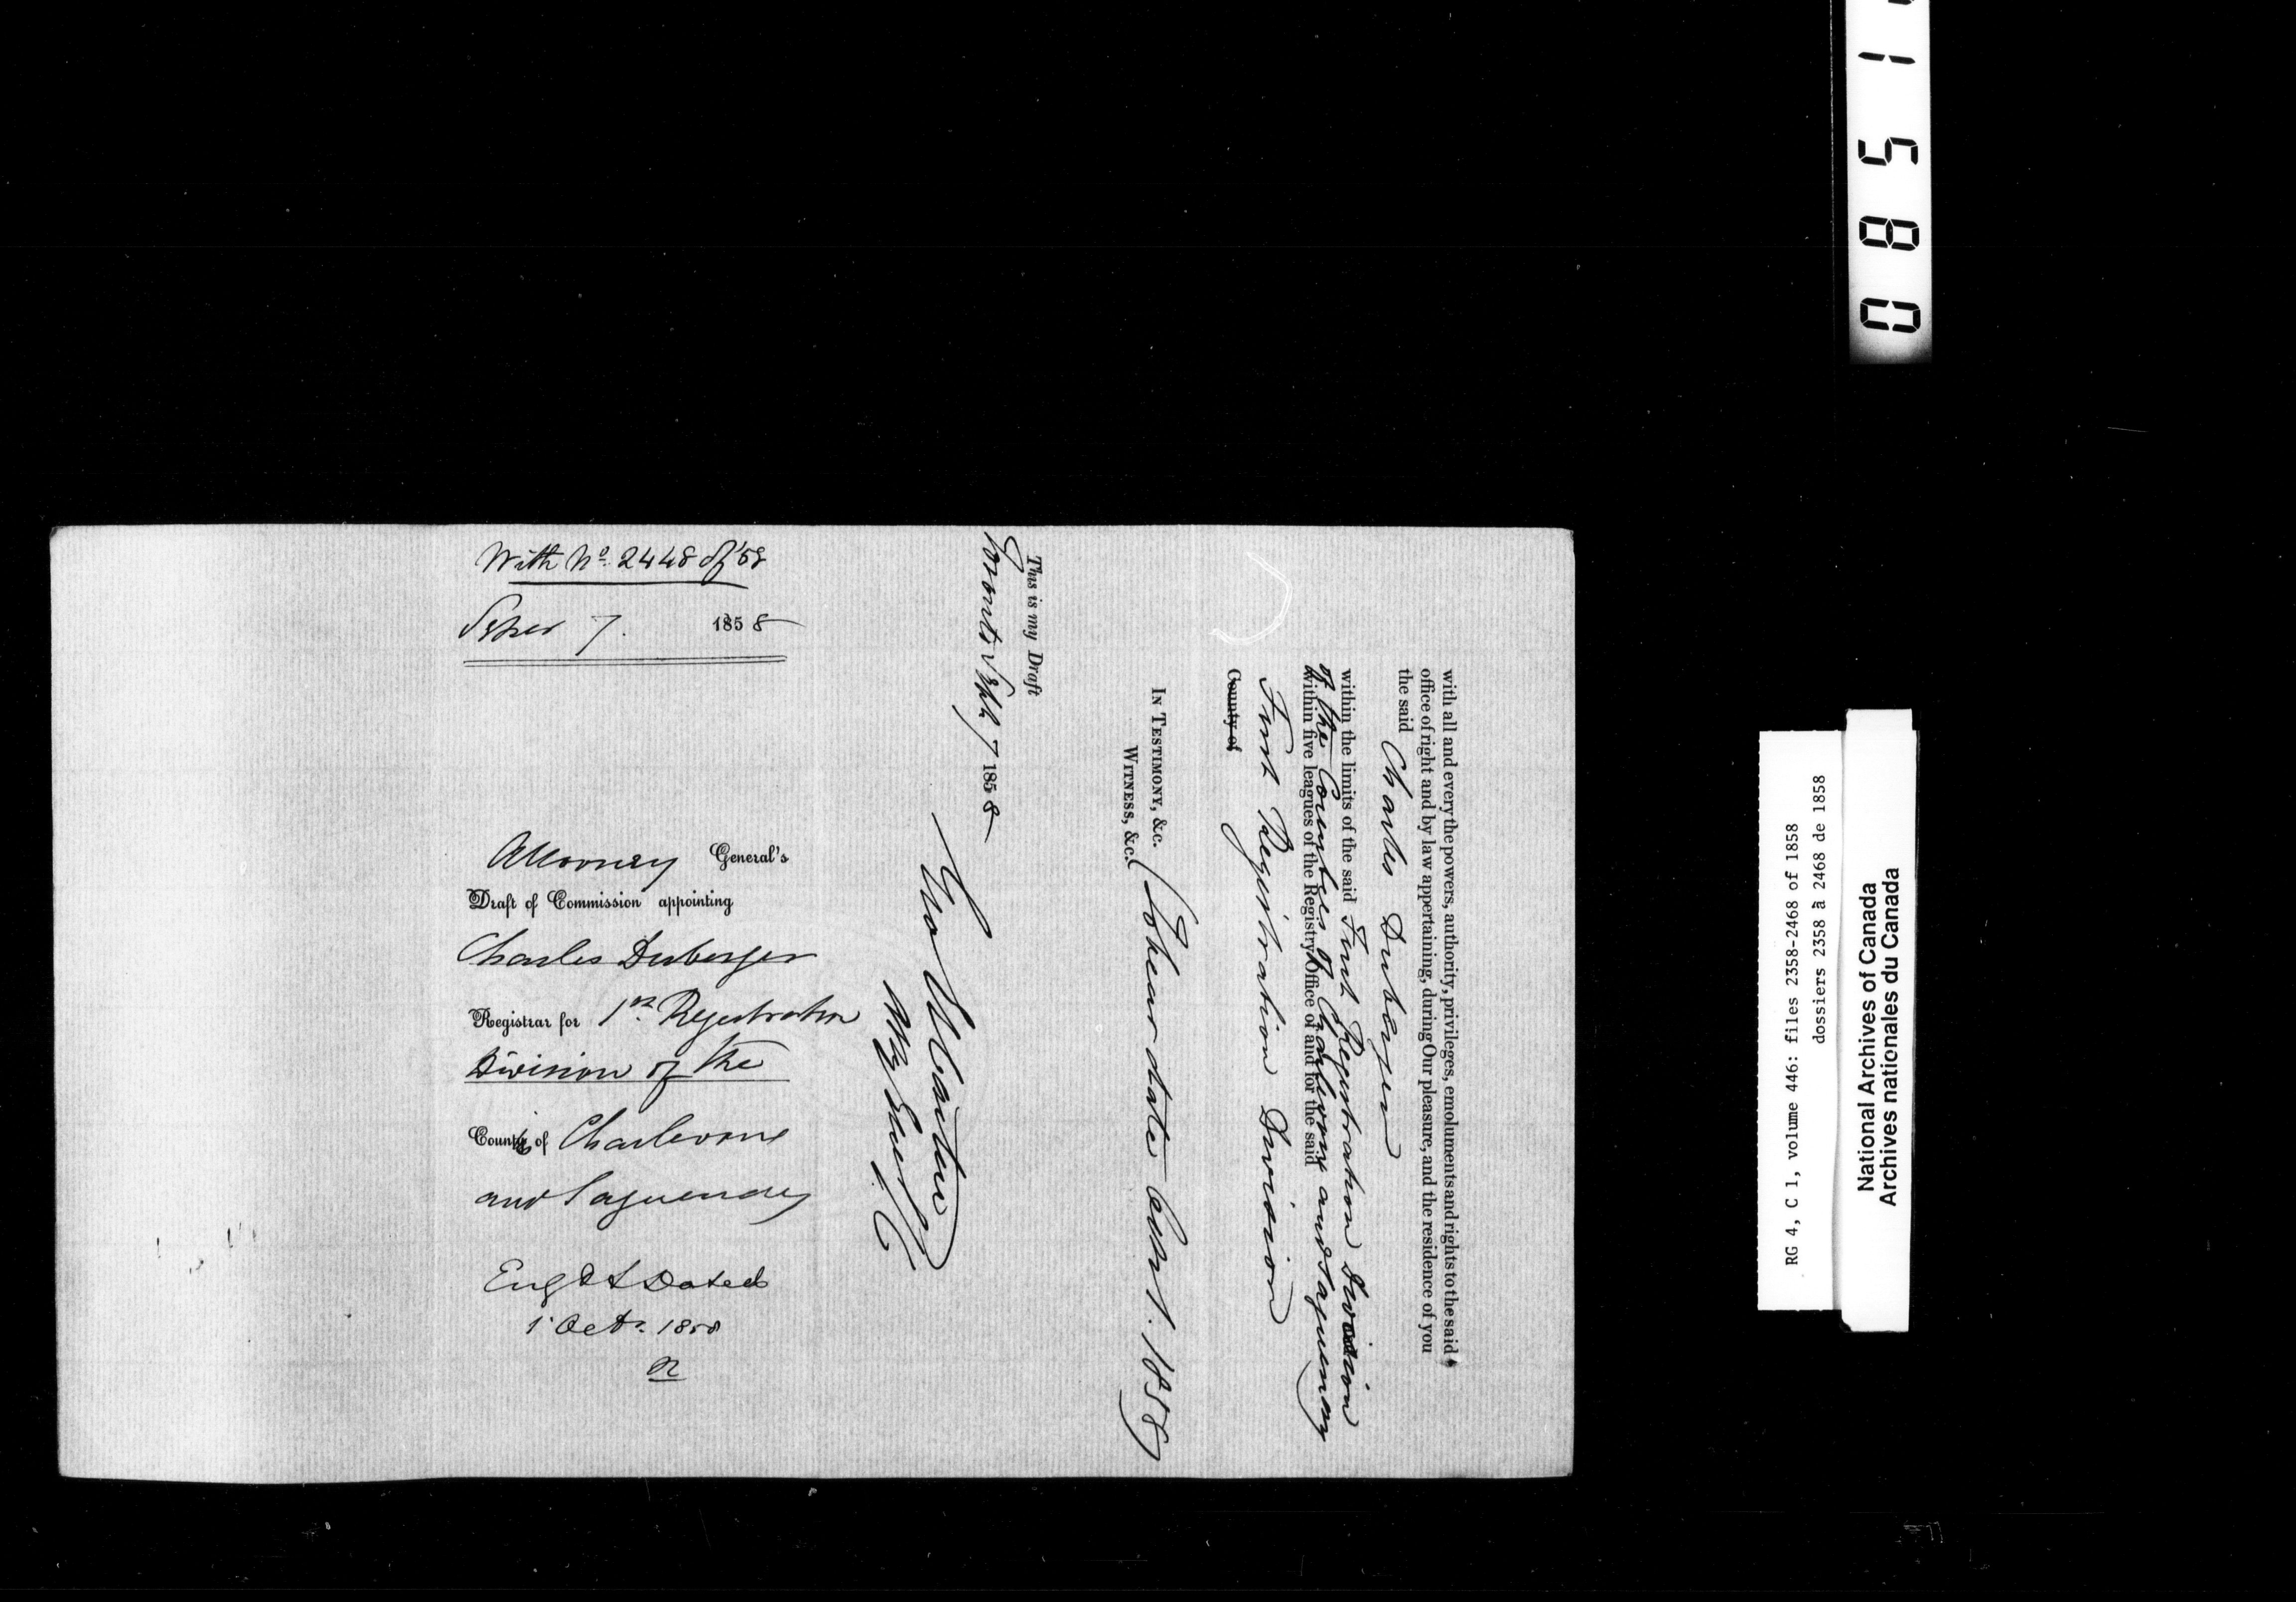 With No. 2448 of '58
Septer 7. 1858
Attorney General's
Draft of Commission appointing
Charles Duberger
Registrar for 1st Registration
Division of the
Counties of Charlevoix
and Saguenay
Engd & Dated
1 Oct. 1858
with all and every the powers, authority, privileges, emoluments and rights to the said
office of right and by law appertaining, during Our pleasure, and the residence of you
the said Charles Duberger
within the limits of the said First Registration Division
of the Counties of Charlevoix and Saguenay
within five leagues of the Registry Office of and for the said
First Registration Division
County of
IN TESTIMONY, &c.
WITNESS, &c. (To bear date
1858)
This is my Draft
Toronto Septr 7 1858
Geo Et Cartier
Atty Genl
RG 4, C 1, volume 446: files 2358-2468 of 1858
dossiers 2358 à 2468 de 1858
National Archives of Canada
Archives nationales du Canada
0851